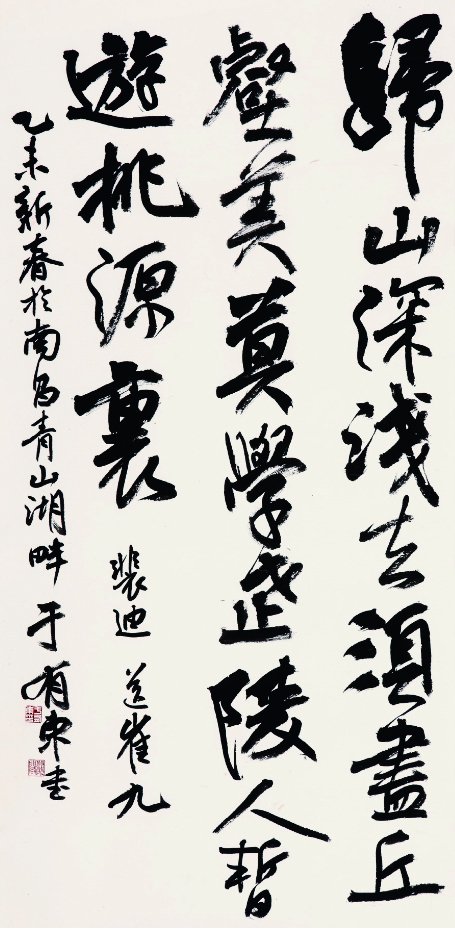 歸山深淺去須盡丘
壑美莫學武陵人暫
遊桃源裏 裴迪 送崔九
乙未新春於南昌青山湖畔 于有東書